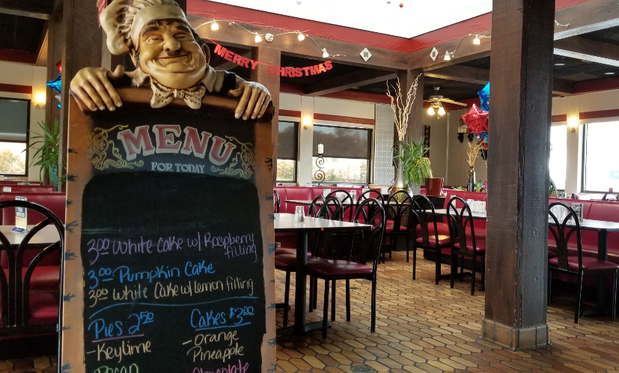 MERRY CHRISTMAS
MENU
FOR TODAY
3.00 White Cake w/ Raspberry
filling
3.00 Pumpkin Cake
3.00 White Cake w/ lemon filling
Pies 2.50
- Key lime
- Pecan
Cakes $3.00
- Orange
Pineapple
- Chocolate